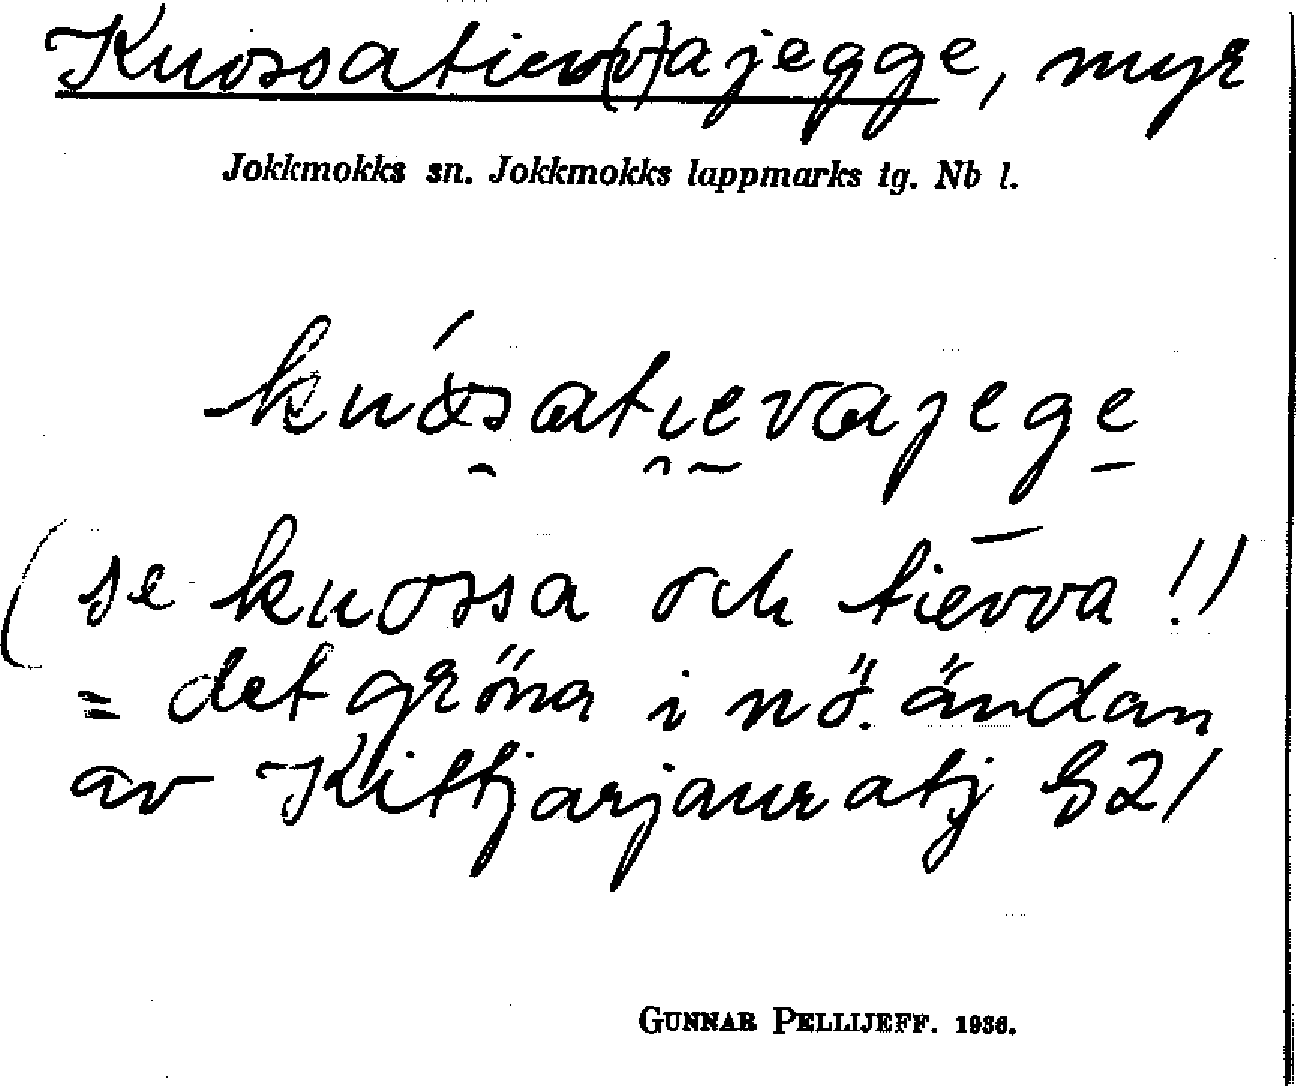 Knossatiev(v)ajegge, myr
Jokkmokks sn. Jokkmokks lappmarks tg. Nb l.
knåsatıevajege
(se knossa och tievva!!
= det gröna i nö. ändan
av Kittjarjauratj G21
GUNNAR PELLIJEFF. 1936.